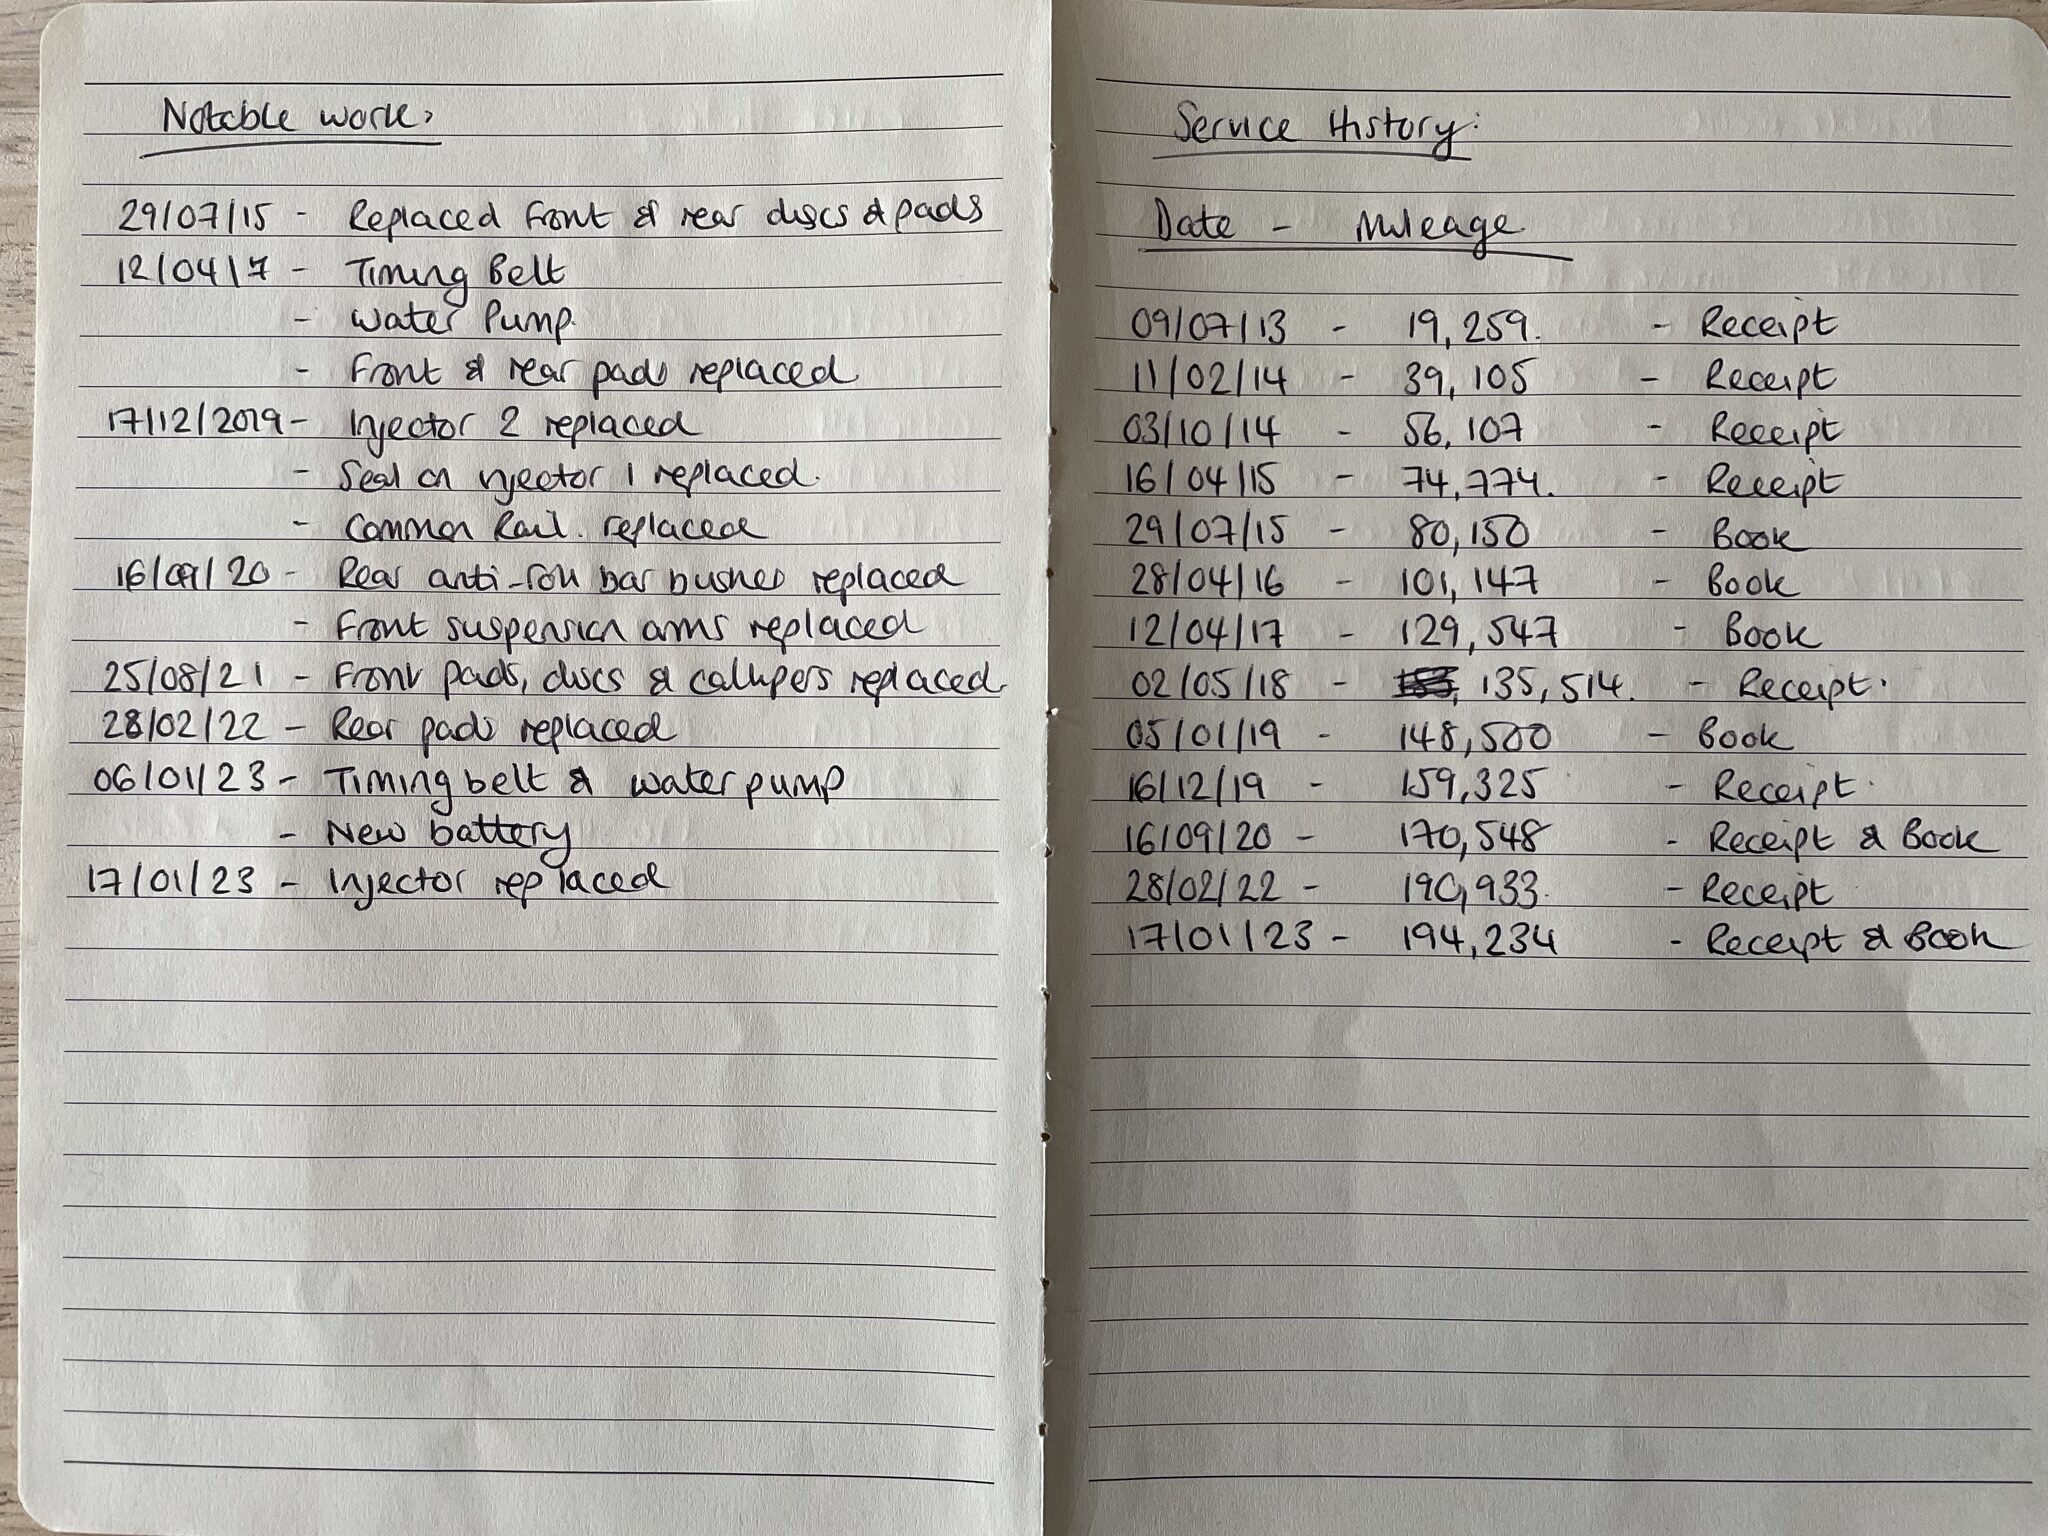 Notable work:
29/07/15 - Replaced front & rear discs & pads
12/04/7 - Timing Belt
- Water Pump.
- Front & rear pads replaced
17/12/2019 - Injector 2 replaced
- Seal on injector 1 replaced.
- Common Rail. replaced
16/09/20 - Rear anti-roll bar bushes replaced
- Front suspension arms replaced
25/08/21 - Front pads, discs & callipers replaced
28/02/22 - Rear pads replaced
06/01/23 - Timing belt & water pump
- New battery
17/01/23 - Injector replaced
Service History:
Date - Mileage
09/07/13 - 19,259. - Receipt
11/02/14 - 39,105 - Receipt
03/10/14 - 56,107 - Receipt
16/04/15 - 74,774. - Receipt
29/07/15 - 80,150 - Book
28/04/16 - 101,147 - Book
12/04/17 - 129,547 - Book
02/05/18 - 135,514. - Receipt.
05/01/19 - 148,500 - Book
16/12/19 - 159,325 - Receipt.
16/09/20 - 170,548 - Receipt & Book
28/02/22 - 190,933. - Receipt
17/01/23 - 194,234 - Receipt & Book